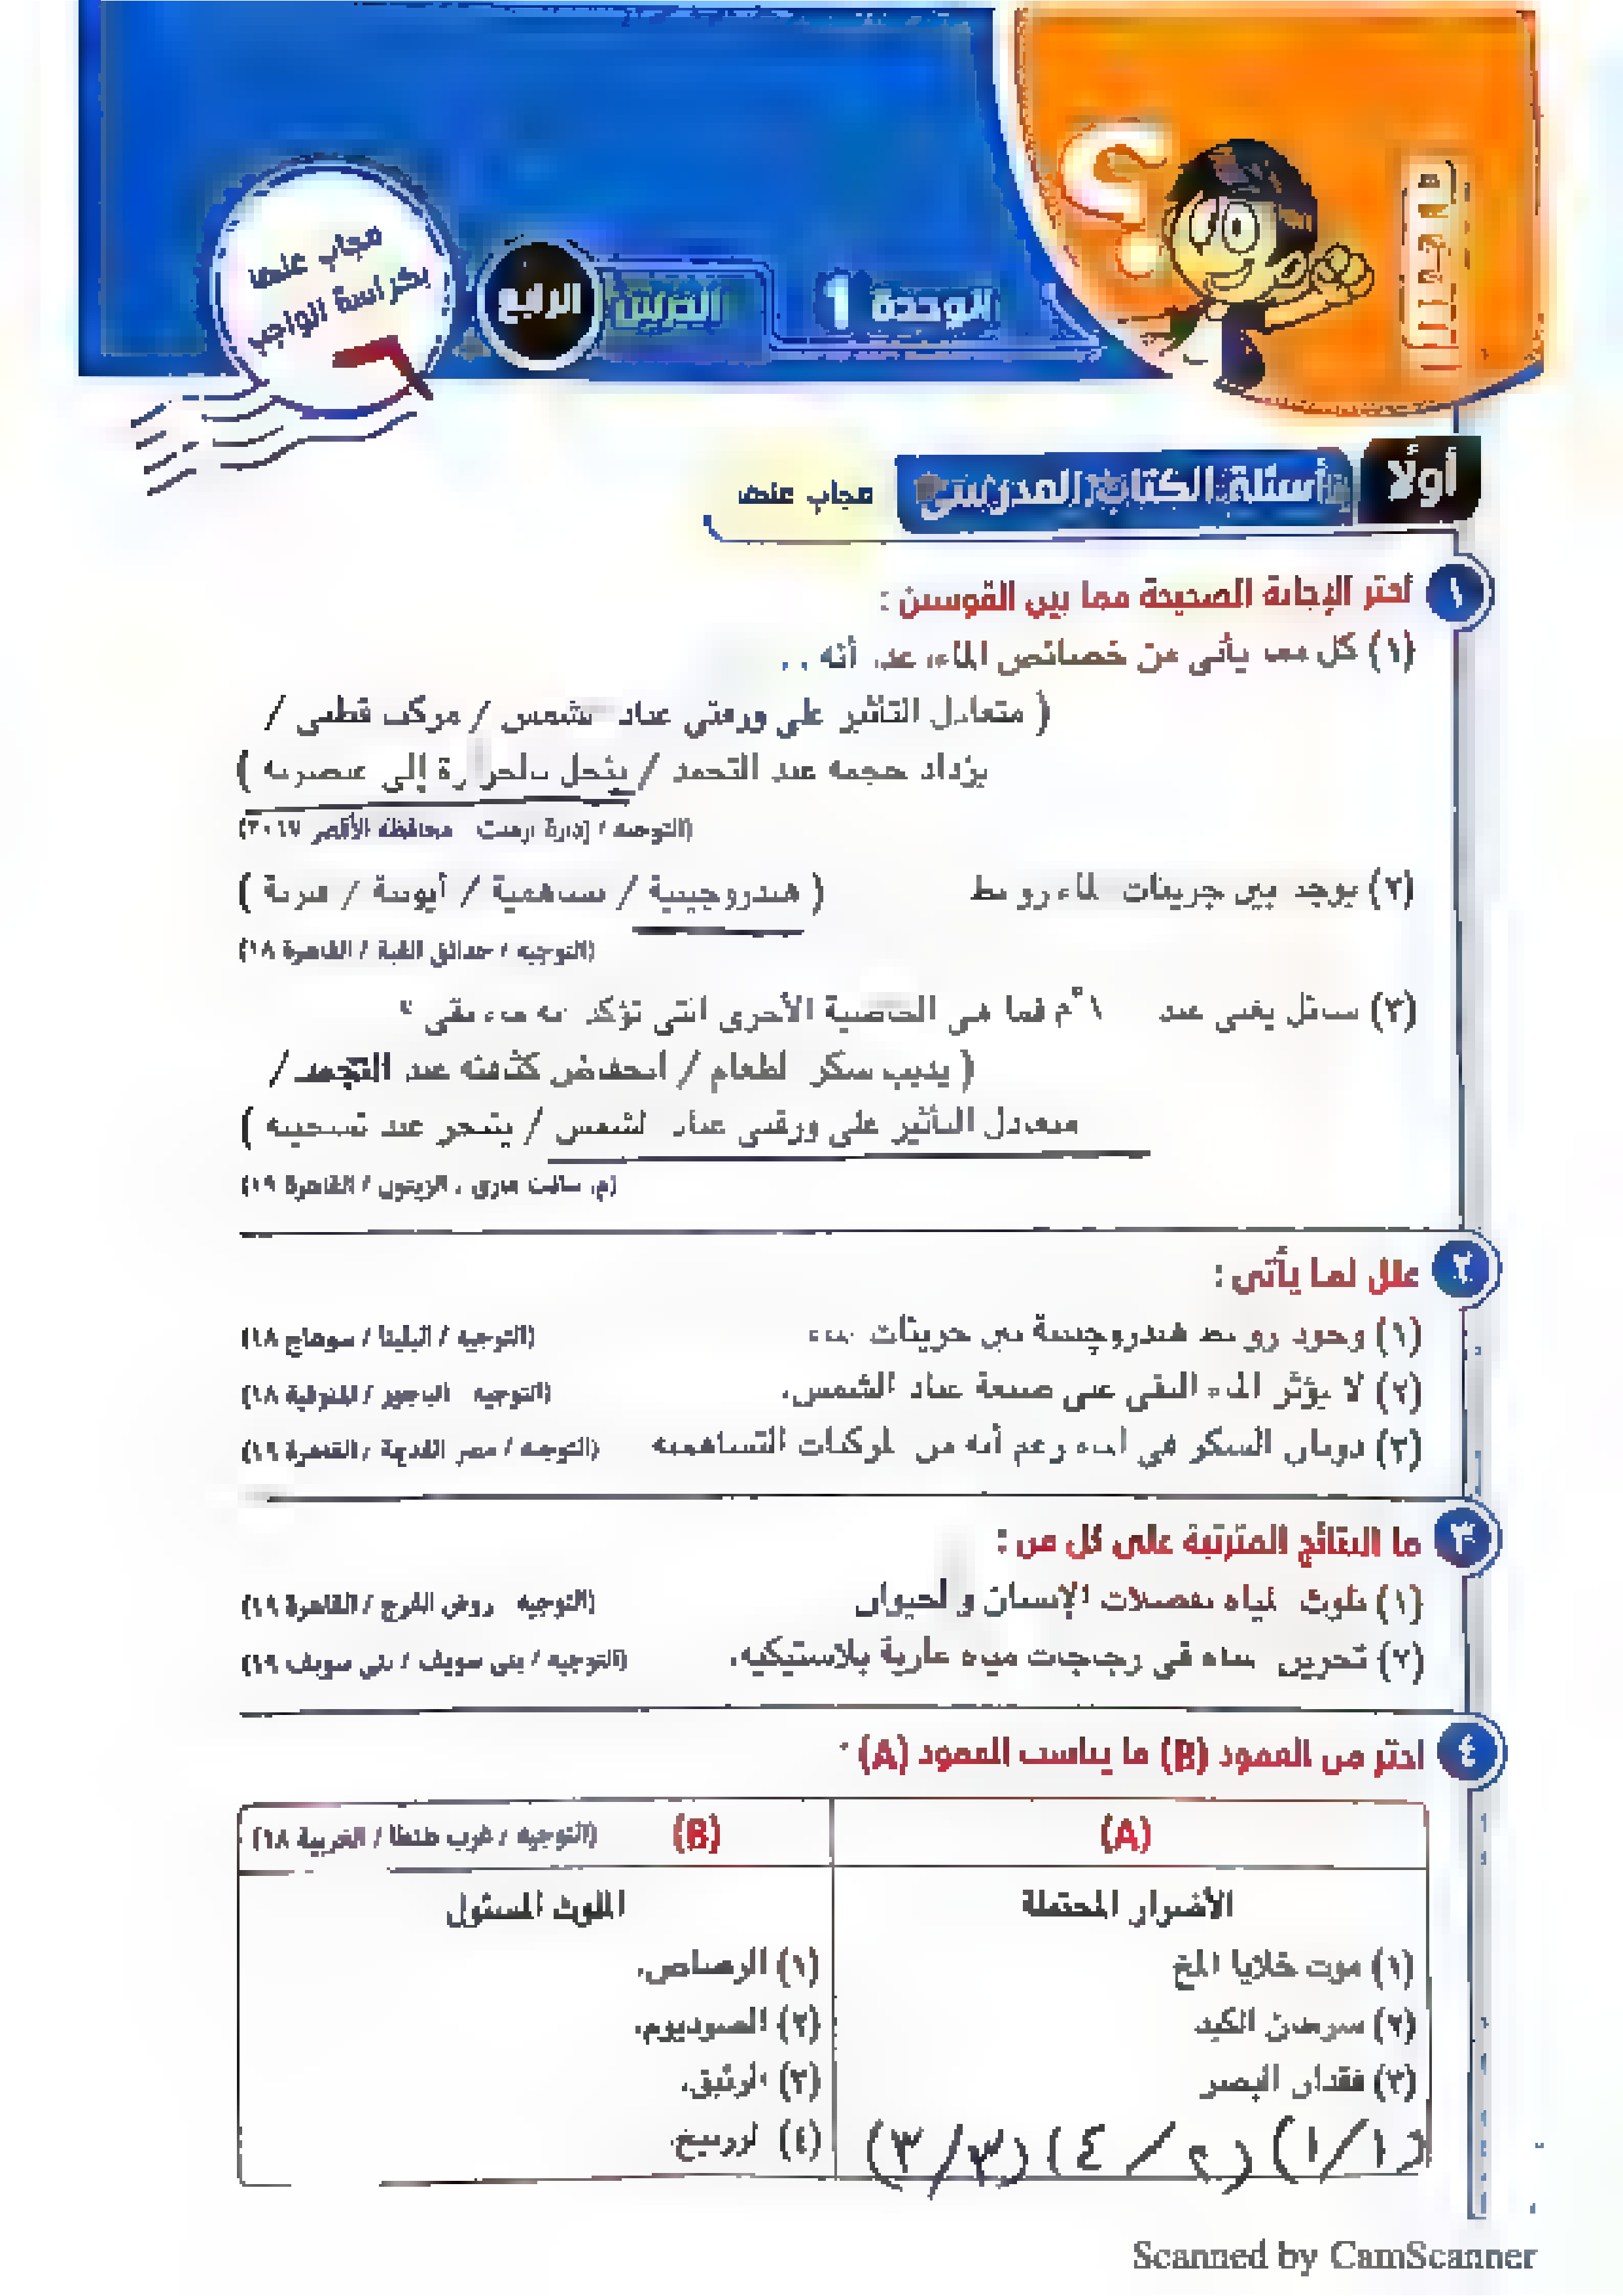 مجاب عنها
بكراسة الواجب
الوحدة 1
الدرس الرابع
أولًا أسئلة الكتاب المدرسى مجاب عنها
١ اختر الإجابة الصحيحة مما بين القوسين :
(١) كل مما يأتى من خصائص الماء، عدا أنه . .
( متعادل التأثير على ورقتى عباد الشمس / مركب قطبى /
يزداد حجمه عند التجمد / ينحل بالحرارة إلى عنصريه )
(التوجيه / إدارة أرمنت محافظة الأقصر ٢٠١٧)
(٢) يوجد بين جزيئات الماء روابط ( هيدروجينية / تساهمية / أيونية / فلزية )
(التوجيه / حدائق القبة / القاهرة ١٨)
(٣) سائل يغلى عند ١ °م فما هى الخاصية الأخرى التى تؤكد أنه ماء نقى ؟
( يذيب سكر الطعام / انخفاض كثافته عند التجمد /
متعادل التأثير على ورقتى عباد الشمس / يتبخر عند تسخينه )
(م. سانت مارى . الزيتون / القاهرة ١٩)
٢ علل لما يأتى :
(١) وجود روابط هيدروجينية بين جزيئات الماء (التوجيه / البلينا / سوهاج ١٨)
(٢) لا يؤثر الماء النقى على صبغة عباد الشمس. (التوجيه الباجور / المنوفية ١٨)
(٣) ذوبان السكر فى الماء رغم أنه من المركبات التساهمية (التوجيه / مصر القديمة / القاهرة ١٩)
٣ ما النتائج المترتبة على كل من :
(١) تلوث المياه بفضلات الإنسان والحيوان (التوجيه روض الفرج / القاهرة ١٩)
(٢) تخزين الماء فى زجاجات مياه غازية بلاستيكية. (التوجيه / بنى سويف / بنى سويف ١٩)
٤ اختر من العمود (B) ما يناسب العمود (A) :
(A) (B) (التوجيه / غرب طنطا / الغربية ١٨)
الأضرار المحتملة الملوث المسئول
(١) موت خلايا المخ (١) الرصاص.
(٢) سرطان الكبد (٢) الصوديوم.
(٣) فقدان البصر (٣) الزئبق.
(٤) الزرنيخ.
(١/١) (٢/٤) (٣/٣)
Scanned by CamScanner